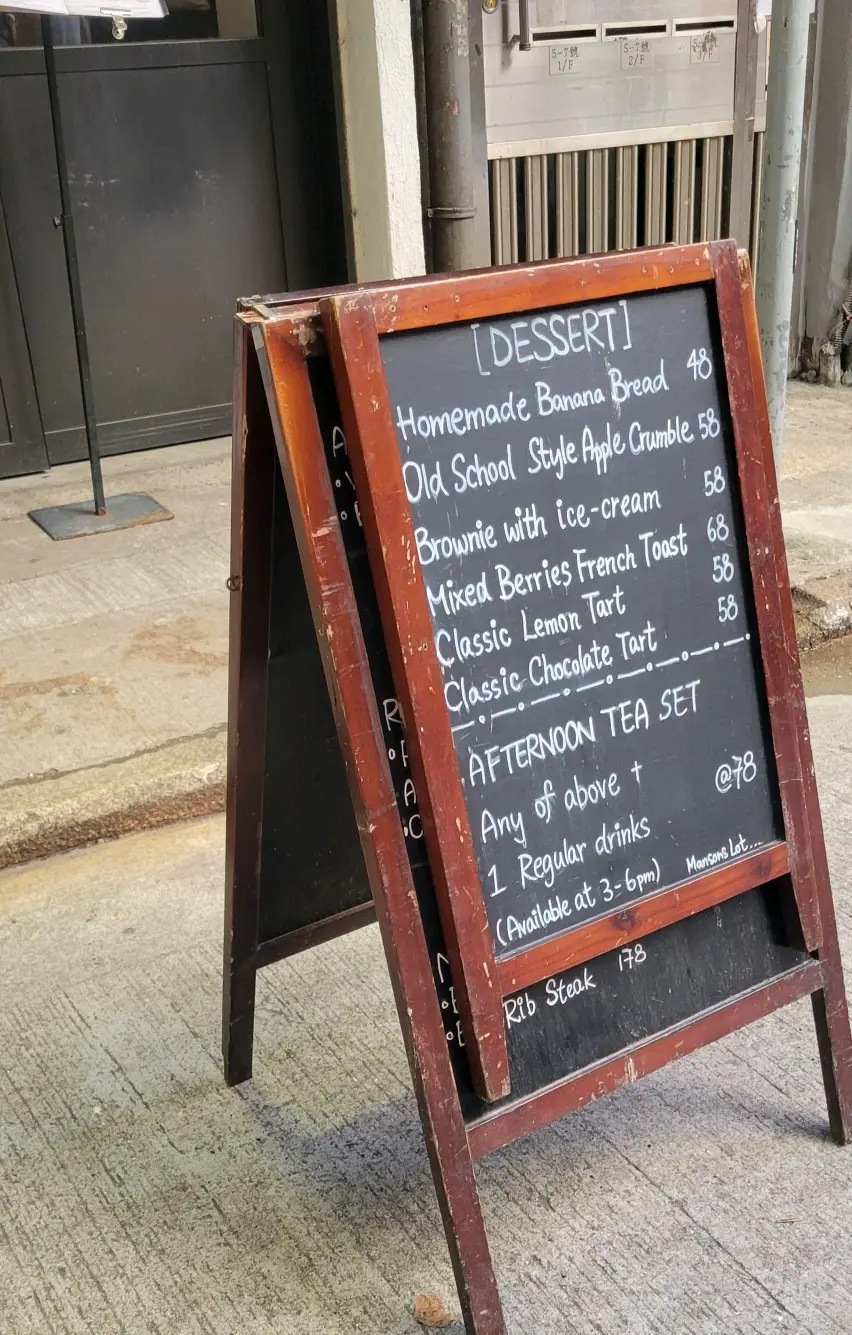 5-7號
1/F
5-7號
2/F
3/F
[DESSERT]
Homemade Banana Bread 48
Old School Style Apple Crumble 58
Brownie with ice-cream 58
Mixed Berries French Toast 68
Classic Lemon Tart 58
Classic Chocolate Tart 58
AFTERNOON TEA SET
Any of above + @78
1 Regular drinks
(Available at 3-6pm) Mansons Lot...
Rib Steak 178